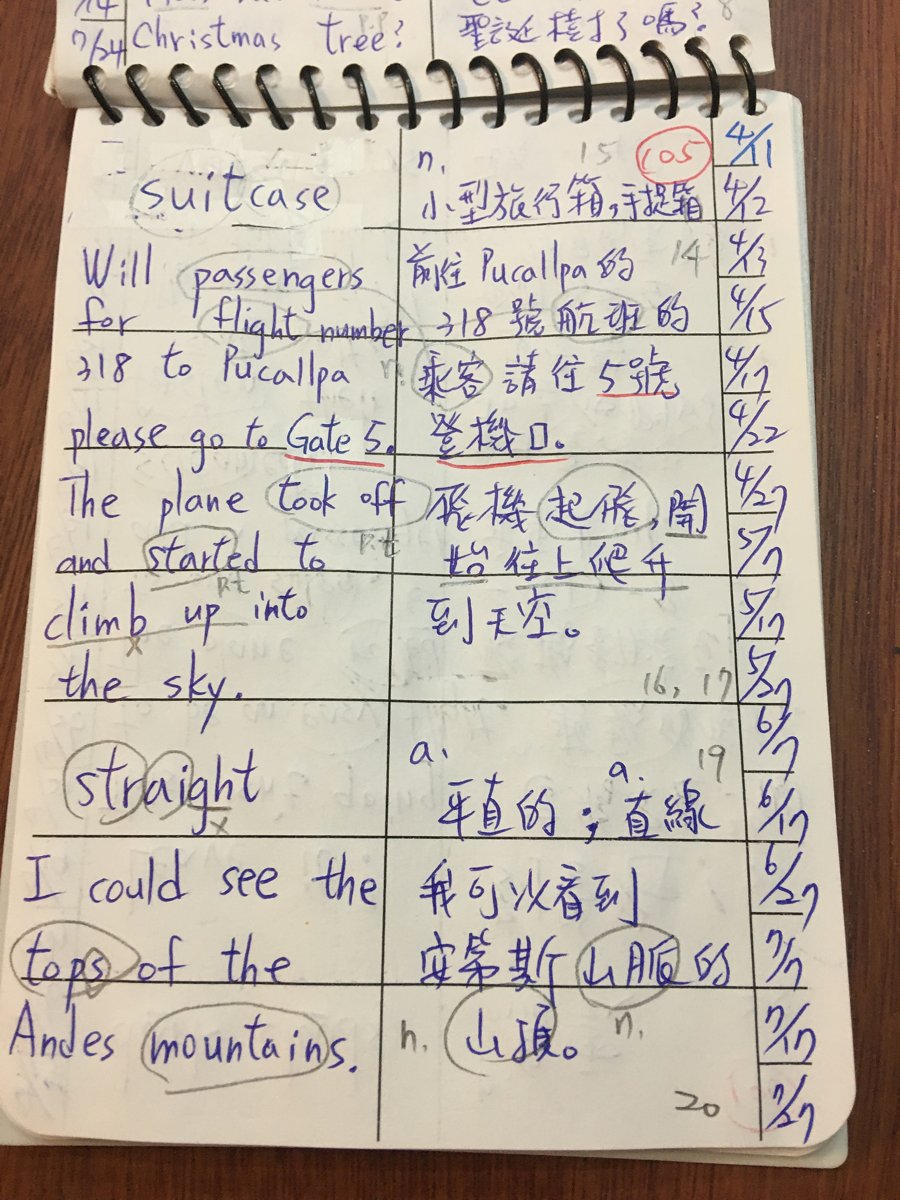 7/24 Christmas tree?
聖誕樹了嗎?
8
n. 15 105 4/11
suitcase 小型旅行箱,手提箱 4/12
Will passengers 前往 Pucallpa 的 14 4/13
for flight number 318 號航班的 4/15
318 to Pucallpa n. 乘客 請往 5號 4/17
please go to Gate 5. 登機口。 4/22
The plane took off 飛機起飛,開 4/27
p.t
and started to 始往上爬升 5/7
p.t
climb up into 到天空。 5/17
x
the sky. 16, 17 5/27
6/7
a. a. 19
straight 平直的;直線 6/17
x
I could see the 我可以看到 6/27
tops of the 安第斯山脈的 7/7
Andes mountains. n. 山頂。 n. 7/17
20 7/27